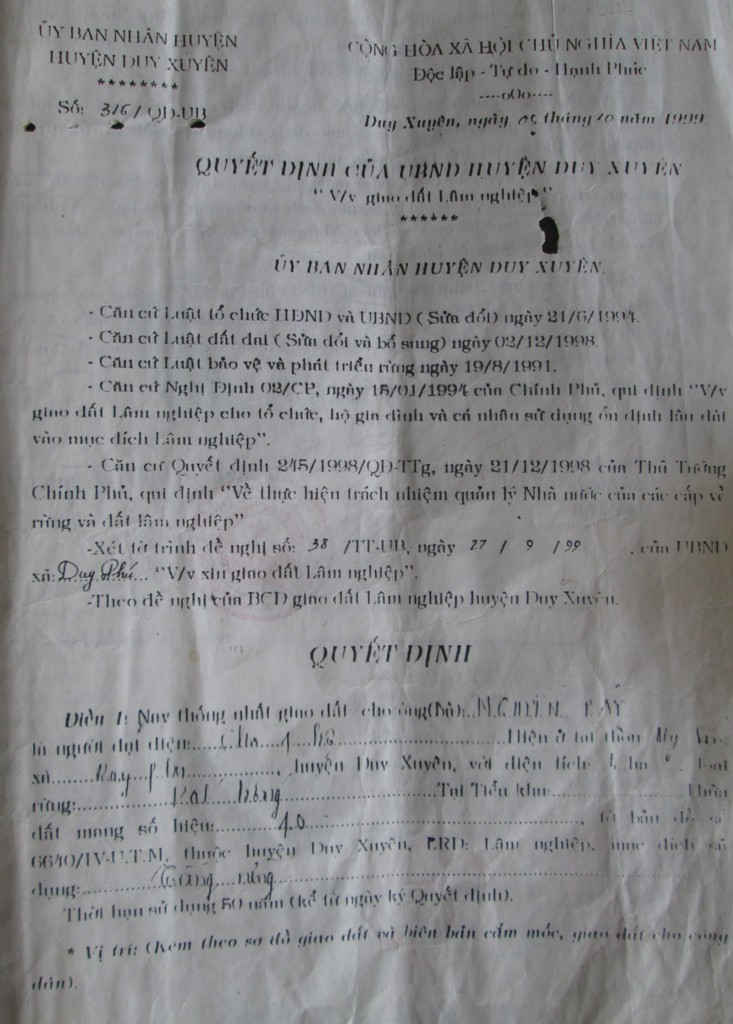 ỦY BAN NHÂN HUYỆN
HUYỆN DUY XUYÊN
********
Số: 316/ QĐ-UB
CỘNG HÒA XÃ HỘI CHỦ NGHĨA VIỆT NAM
Độc lập - Tự do - Hạnh Phúc
----o0o----
Duy Xuyên, ngày 05 tháng 10 năm 1999
QUYẾT ĐỊNH CỦA UBND HUYỆN DUY XUYÊN
"V/v giao đất Lâm nghiệp"
******
ỦY BAN NHÂN HUYỆN DUY XUYÊN
- Căn cứ Luật tổ chức HĐND và UBND ( Sửa đổi) ngày 21/6/1994.
- Căn cứ Luật đất đai ( Sửa đổi và bổ sung) ngày 02/12/1998.
- Căn cứ Luật bảo vệ và phát triển rừng ngày 19/8/1991.
- Căn cứ Nghị Định 02/CP, ngày 15/01/1994 của Chính Phủ, qui định "V/v
giao đất Lâm nghiệp cho tổ chức, hộ gia đình và cá nhân sử dụng ổn định lâu dài
vào mục đích Lâm nghiệp".
- Căn cứ Quyết định 245/1998/QĐ-TTg, ngày 21/12/1998 của Thủ Tướng
Chính Phủ, qui định "Về thực hiện trách nhiệm quản lý Nhà nước của các cấp về
rừng và đất lâm nghiệp"
-Xét tờ trình đề nghị số: 38 /TT-UB, ngày 27 / 9 / 99 , của UBND
xã: Duy Phú... "V/v xin giao đất Lâm nghiệp".
-Theo đề nghị của BCĐ giao đất Lâm nghiệp huyện Duy Xuyên.
QUYẾT ĐỊNH
Điều 1: Nay thống nhất giao đất cho ông(bà):
là người đại diện:.....Cho.....Hiện ở tại thôn Mỹ
xã.......Duy Phú.............., huyện Duy Xuyên, với diện tích: Loại
rừng:..............................Tại Tiểu khu:.................... Khoảnh
đất mang số hiệu:..........10..............................., tờ bản đồ số
6640/IV-U.T.M, thuộc huyện Duy Xuyên, Lâm nghiệp, mục đích sử
dụng:..........Trồng....rừng..............................
Thời hạn sử dụng 50 năm (kể từ ngày ký Quyết định).
* Vị trí: (Kèm theo sơ đồ giao đất và biên bản cắm mốc, giao đất cho công
dân).